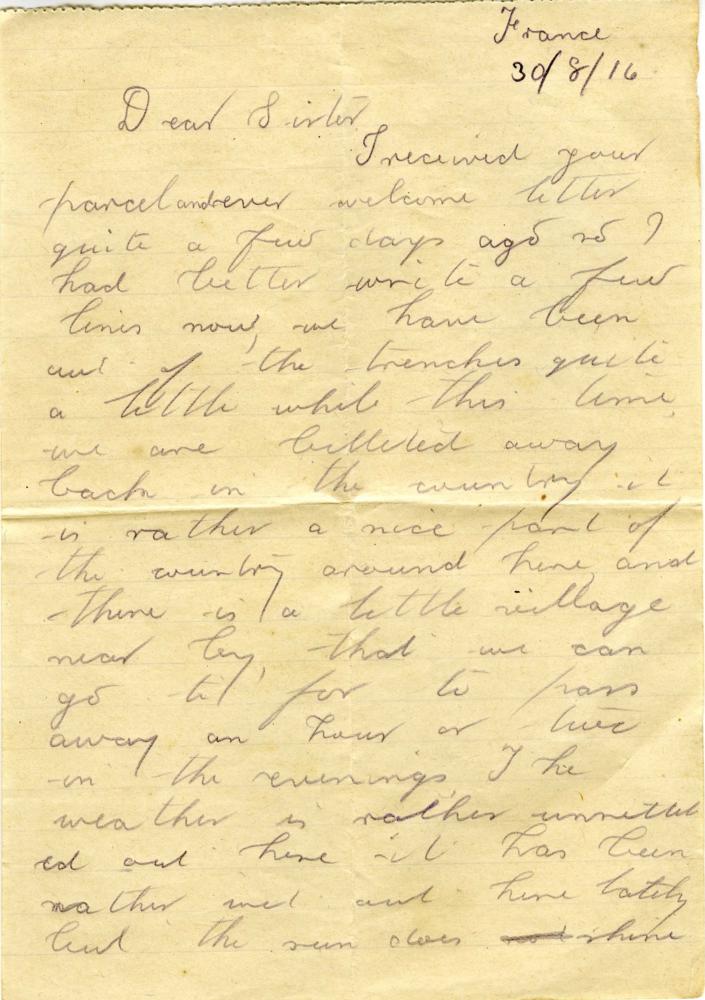 France
30/8/16
Dear Sister
I received your
parcel and ever welcome letter
quite a few days ago so I
had better write a few
lines now, we have been
out of the trenches quite
a little while this time,
we are billeted away
back in the country it
is rather a nice part of
the country around here, and
there is a little village
near by, that we can
go to for to pass
away an hour or two
in the evenings, The
weather is rather unsettl
ed out here it has been
rather wet out here lately
but the sun does shine